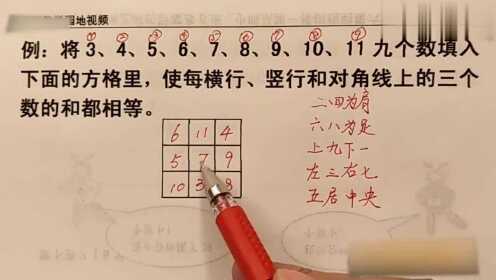 园地视频
① ② ③ ④ ⑤ ⑥ ⑦ ⑧ ⑨
例：将 3、4、5、6、7、8、9、10、11 九个数填入
下面的方格里，使每横行、竖行和对角线上的三个
数的和都相等。
二四为肩
六八为足
上九下一
左三右七
五居中央
6 11 4
5 7 9
10 3 8